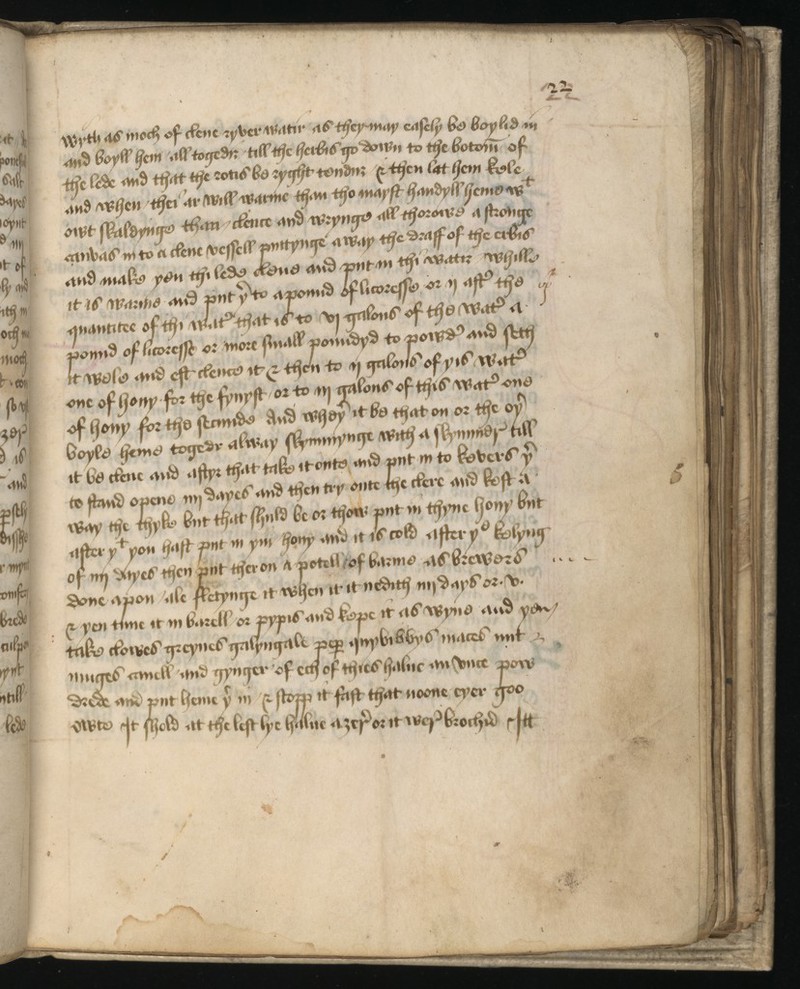 22
wyth as moch of clene ryver watir as they may easely be boylid in
and boyll hem all togedir till the herbis go down to the botom̄ of
the lede and that the rotis be ryght tendir & then lat hem kele
and when thei ar will warme than tho mayst handyll heme wt
owt skaldynge than clence and wrynge all thorowe a stronge
canvas in to a clene vessell puttynge a way the draff of the erbis
and make yen thi lede clene and put in thi watir whille
it is warme and put yr to a pound of licoresse or ij aftr the
quantitee of thi watr that is to vj galons of the watr a
pound of licoresse or more small poundyd to powdr and seth
it wele and eft clence it & then to ij galons of yis watr
one of hony for the fynyst or to iij galons of this watr one
of hony for the secunde And wheyr it be that on or the oyr
boyle heme togedr alway skymmynge with a skymmer till
it be clene and aftyr that take it oute and put in to kevers yr
to stand opene iiij dayes and then try oute the clere and kest a
way the thyke but that shuld be or thow put in thyne hony but
after yt you hast put in yin hony and it is cold after ye kelyng
of iiij dayes then put ther on a potell of barme as brewers
done apon ale fletynge it when it it nedith iiij days or v.
& yen tunne it in barell or pypis and kepe it as wyne and yen
take clowes greynes galyngale pepr quybibbys maces nut
muges canell and gynger of ech of thies halue an vnce pow
drede and put heme yr in & stopp it fast that noone eyer goo
owte It shold at the lest lye halue a zer or it wer brochid Itt